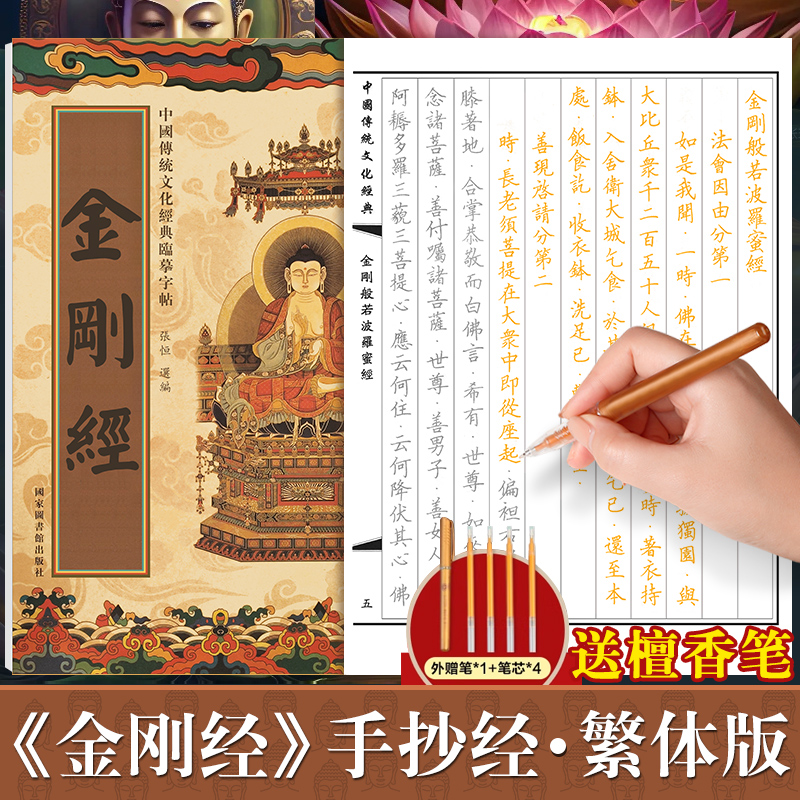 金剛經
中國傳統文化經典臨摹字帖
張恒 選編
國家圖書館出版社
金剛般若波羅蜜經
法會因由分第一
如是我聞·一時·佛在
獨園·與
大比丘衆千二百五十人
時·著衣持
鉢·入舍衛大城乞食·於其
乞已·還至本
處·飯食訖·收衣鉢·洗足已·敷
善現啓請分第二
時·長老須菩提在大衆中即從座起·偏袒右
膝著地·合掌恭敬而白佛言·希有·世尊·如
念諸菩薩·善付囑諸菩薩·世尊·善男子·善女人
阿耨多羅三藐三菩提心·應云何住·云何降伏其心·佛
中國傳統文化經典
金剛般若波羅蜜經
五
外赠笔*1+笔芯*4
送檀香笔
《金刚经》手抄经·繁体版